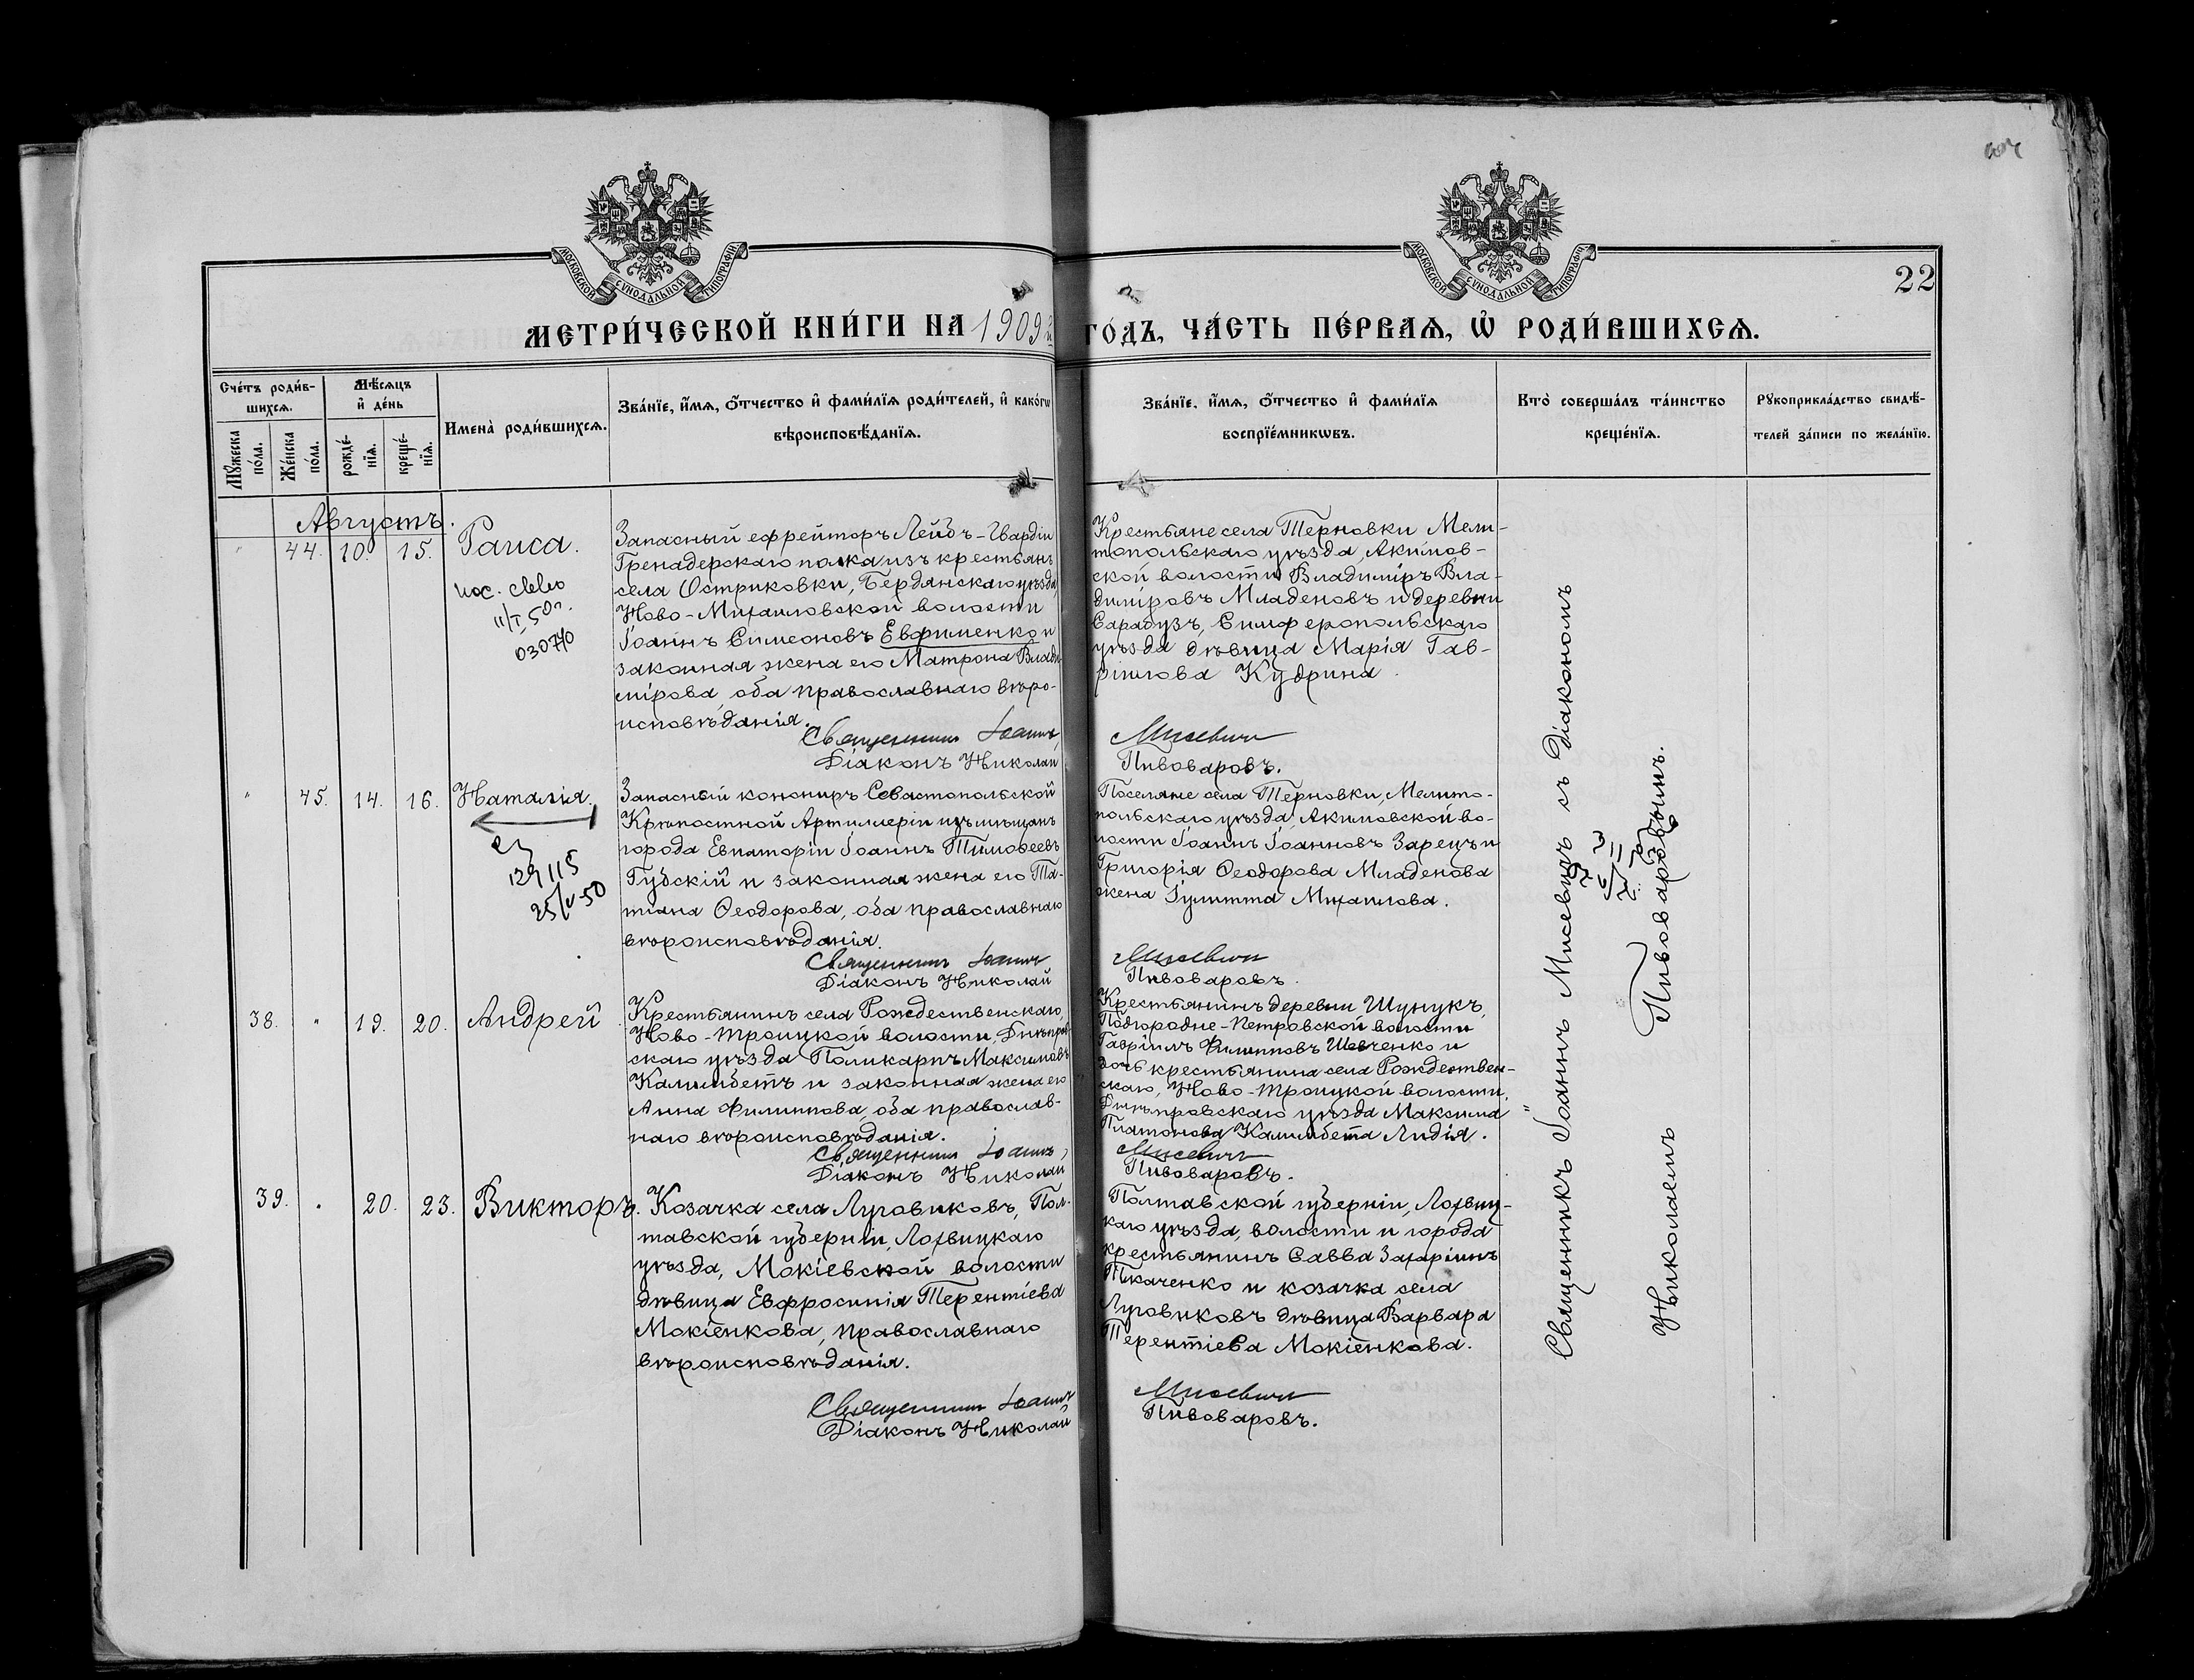 22
МОСКОВСКОЙ СѴНОДАЛЬНОЙ ТИПОГРАФІИ
МОСКОВСКОЙ СѴНОДАЛЬНОЙ ТИПОГРАФІИ
МЕТРИ́ЧЕСКОЙ КНИ́ГИ НА 1909й ГО́ДЪ, ЧА́СТЬ ПЕ́РВАѦ, Ѡ РОДИ́ВШИХСѦ.
Сче́тъ роди́в-
шихсѧ.
Мѣ́сѧцъ
и҆ де́нь
Мꙋ́жеска
по́ла.
Же́нска
по́ла.
рожде́-
нїѧ.
креще́-
нїѧ.
Имена̀ роди́вшихсѧ.
Зва́нїе, и҆́мѧ, ѻ҆́тчество и҆ фами́лїѧ роди́телей, и҆ како́гѡ
вѣроисповѣ́данїѧ.
Зва́нїе, и҆́мѧ, ѻ҆́тчество и҆ фами́лїѧ
воспрїе́мникѡвъ.
Кто̀ соверша́лъ та́инство
креще́нїѧ.
Рꙋкоприкла́дство свидѣ́-
телей за́писи по жела́нїю.
Августъ.
" 44. 10. 15. Раиса.
II/I 50г.
03070
Запасный ефрейторъ Лейбъ-Гвардіи
Гренадерскаго полка изъ крестьянъ
села Остриковки, Бердянскаго уѣзда,
Ново-Михаиловской волости
Іоаннъ Симеоновъ Евфименко и
законная жена его Матрона Влади-
мірова, оба православнаго вѣро-
исповѣданія.
Священникъ Іоаннъ
Діаконъ Николай
Крестьяне села Терновки Мели-
топольскаго уѣзда, Акимов-
ской волости Владиміръ Вла-
диміровъ Младеновъ и деревни
Сарабузъ, Симферопольскаго
уѣзда дѣвица Марія Гав-
ріилова Кудрина.
Мисевичъ
Пивоваровъ.
" 45. 14. 16. Наталія.
129115
25/V-50
Запасный канониръ Севастопольской
Крѣпостной Артиллеріи изъ мѣщанъ
города Евпаторіи Іоаннъ Тимоѳеевъ
Губскій и законная жена его Та-
тіана Ѳеодорова, оба православнаго
вѣроисповѣданія.
Священникъ Іоаннъ
Діаконъ Николай
Поселяне села Терновки, Мелито-
польскаго уѣзда, Акимовской во-
лости Іоаннъ Іоанновъ Зарецъ и
Григорія Ѳеодорова Младенова
жена Іулитта Михаилова.
Мисевичъ
Пивоваровъ.
38. " 19. 20. Андрей
Крестьянинъ села Рождественскаго,
Ново-Троицкой волости, Днѣпров-
скаго уѣзда Поликарпъ Максимовъ
Калимбетъ и законная жена его
Анна Филиппова, оба православ-
наго вѣроисповѣданія.
Священникъ Іоаннъ
Діаконъ Николай
Крестьянинъ деревни Шунукъ,
Подгородне-Петровской волости
Гавріилъ Филипповъ Шевченко и
дочь крестьянина села Рождествен-
скаго, Ново-Троицкой волости,
Днѣпровскаго уѣзда Максима
Платонова Калимбета Лидія.
Мисевичъ
Пивоваровъ.
39. " 20. 23. Викторъ.
Козачка села Луговиковъ, Пол-
тавской губерніи, Лохвицкаго
уѣзда, Мокіевской волости
дѣвица Евфросинія Терентіева
Мокіенкова, православнаго
вѣроисповѣданія.
Священникъ Іоаннъ
Діаконъ Николай
Полтавской губерніи, Лохвиц-
каго уѣзда, волости и города
крестьянинъ Савва Захаріинъ
Ткаченко и козачка села
Луговиковъ дѣвица Варвара
Терентіева Мокіенкова.
Мисевичъ
Пивоваровъ.
Священникъ Іоаннъ Мисевичъ съ Діакономъ
Николаемъ Пивоваровымъ.